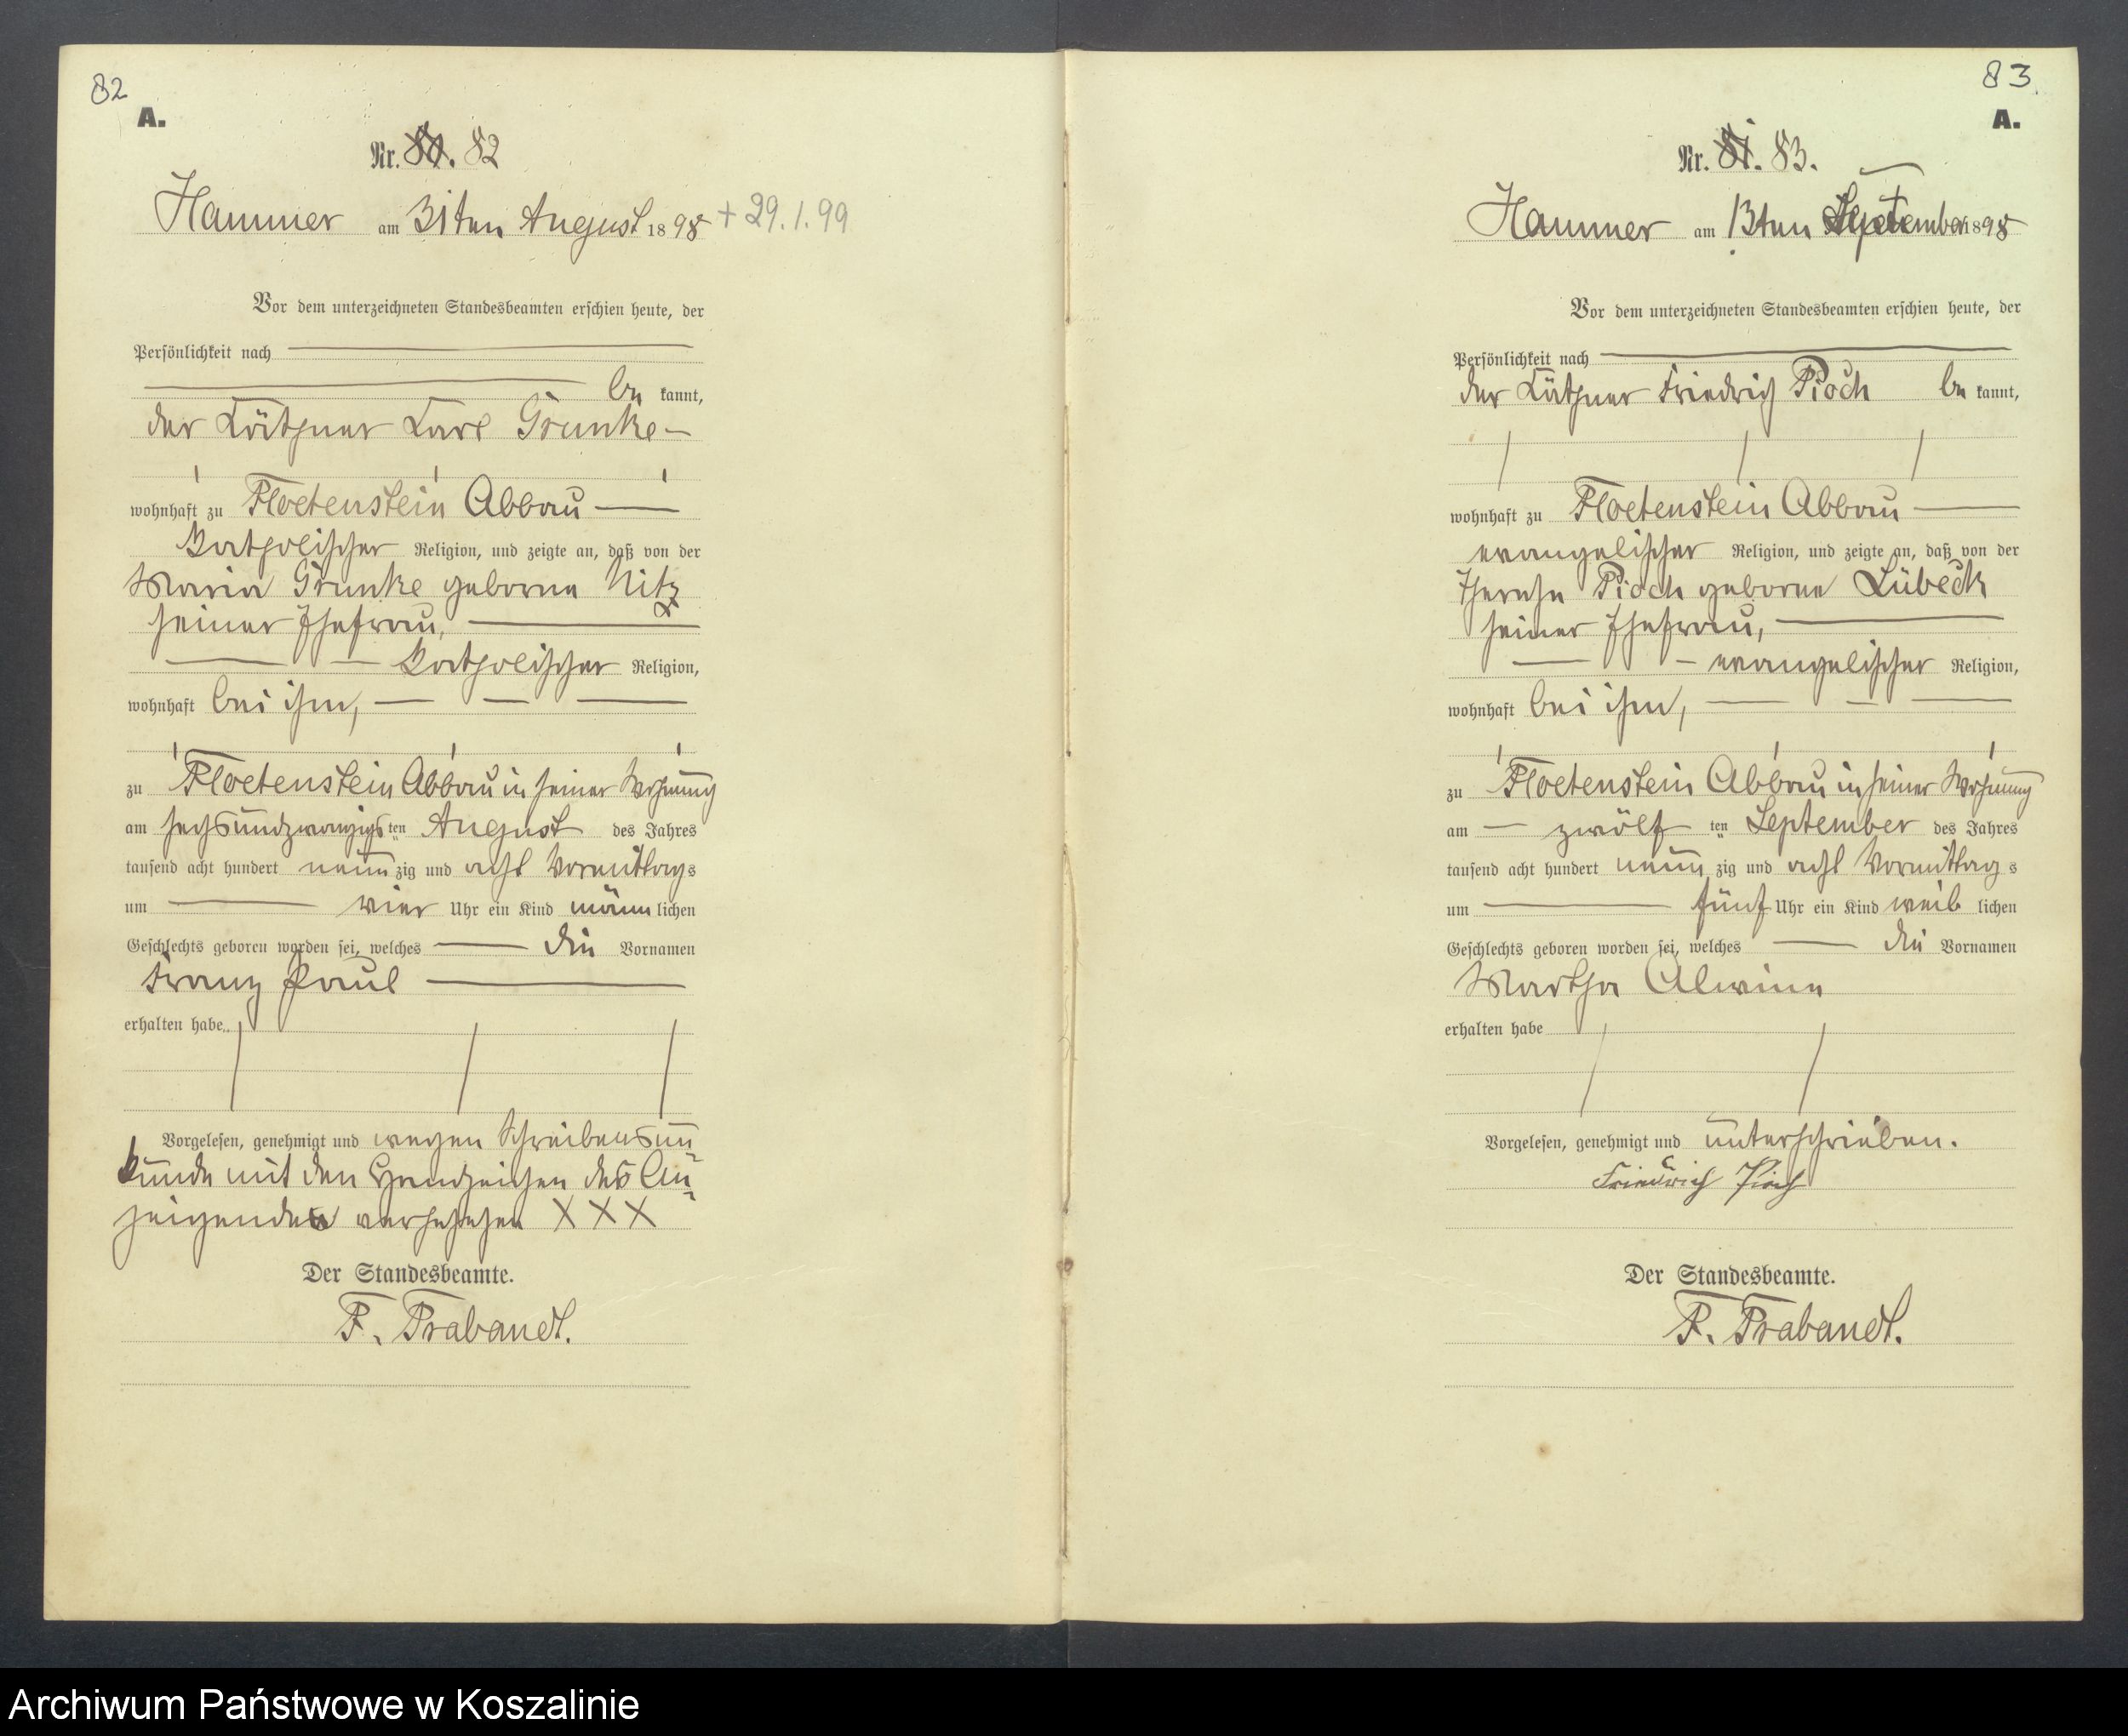 82
A.
Nr. 80. 82
Hammer am 31ten August 1898 + 29.1.99
Vor dem unterzeichneten Standesbeamten erschien heute, der
Persönlichkeit nach
be kannt,
der Käthner Carl Grunke
wohnhaft zu Floetenstein Abbau
katholischer Religion, und zeigte an, daß von der
Maria Grunke geborne Nitz
seiner Ehefrau,
katholischer Religion,
wohnhaft bei ihm,
zu Floetenstein Abbau in seiner Wohnung
am sechsundzwanzigsten August des Jahres
tausend acht hundert neunzig und acht Vormittags
um vier Uhr ein Kind männlichen
Geschlechts geboren worden sei, welches die Vornamen
Franz Paul
erhalten habe
Vorgelesen, genehmigt und wegen Schreibensun-
kunde mit den Handzeichen des An-
zeigenden versehen X X X
Der Standesbeamte.
F. Trabandt.
83
A.
Nr. 81. 83.
Hammer am 13ten September 1898
Vor dem unterzeichneten Standesbeamten erschien heute, der
Persönlichkeit nach
der Käthner Friedrich Pioch be kannt,
wohnhaft zu Floetenstein Abbau
evangelischer Religion, und zeigte an, daß von der
Pioch geborne Lübeck
seiner Ehefrau,
evangelischer Religion,
wohnhaft bei ihm,
zu Floetenstein Abbau in seiner Wohnung
am zwölften September des Jahres
tausend acht hundert neunzig und acht Vormittags
um fünf Uhr ein Kind weiblichen
Geschlechts geboren worden sei, welches die Vornamen
Martha Alwine
erhalten habe
Vorgelesen, genehmigt und unterschrieben.
Friedrich Pioch
Der Standesbeamte.
F. Trabandt.
Archiwum Państwowe w Koszalinie